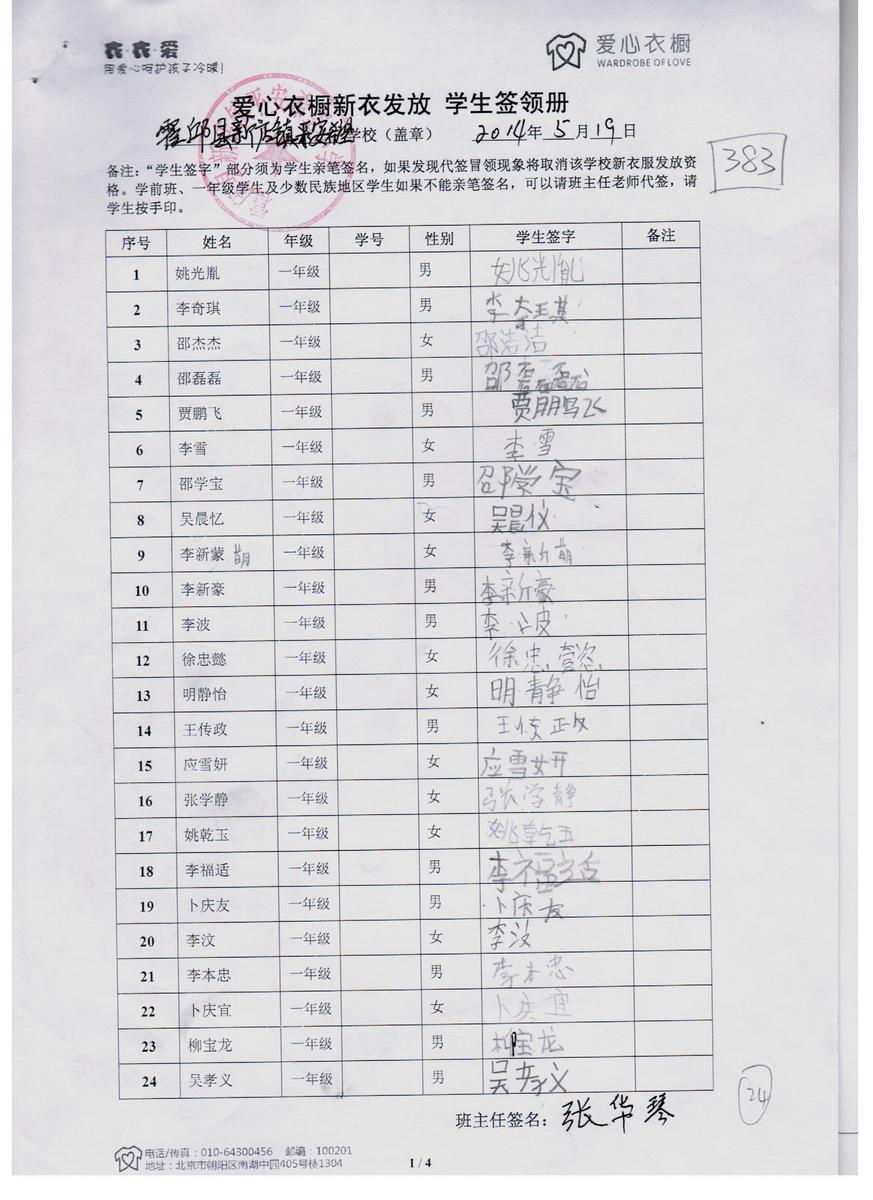 衣·衣·爱
用爱心呵护孩子冷暖!
爱心衣橱
WARDROBE OF LOVE
爱心衣橱新衣发放 学生签领册
霍邱县新店镇 学校（盖章） 2014年 5月19日
383
备注：“学生签字”部分须为学生亲笔签名，如果发现代签冒领现象将取消该学校新衣服发放资
格。学前班、一年级学生及少数民族地区学生如果不能亲笔签名，可以请班主任老师代签，请
学生按手印。
序号 姓名 年级 学号 性别 学生签字 备注
1 姚光胤 一年级 男 姚光胤
2 李奇琪 一年级 男 李奇琪
3 邵杰杰 一年级 女 邵洁洁
4 邵磊磊 一年级 男 邵磊磊
5 贾鹏飞 一年级 男 贾鹏飞
6 李雪 一年级 女 李雪
7 邵学宝 一年级 男 邵学宝
8 吴晨忆 一年级 女 吴晨仪
9 李新蒙 萌 一年级 女 李新萌
10 李新豪 一年级 男 李新豪
11 李波 一年级 男 李波
12 徐忠懿 一年级 女 徐忠懿
13 明静怡 一年级 女 明静怡
14 王传政 一年级 男 王传政
15 应雪妍 一年级 女 应雪妍
16 张学静 一年级 女 张学静
17 姚乾玉 一年级 女 姚乾玉
18 李福适 一年级 男 李福适
19 卜庆友 一年级 男 卜庆友
20 李汶 一年级 女 李汶
21 李本忠 一年级 男 李本忠
22 卜庆宜 一年级 女 卜庆宜
23 柳宝龙 一年级 男 柳宝龙
24 吴孝义 一年级 男 吴孝义
班主任签名：张华琴
24
电话/传真：010-64300456 邮编：100201
地址：北京市朝阳区南湖中园405号楼1304
1 / 4